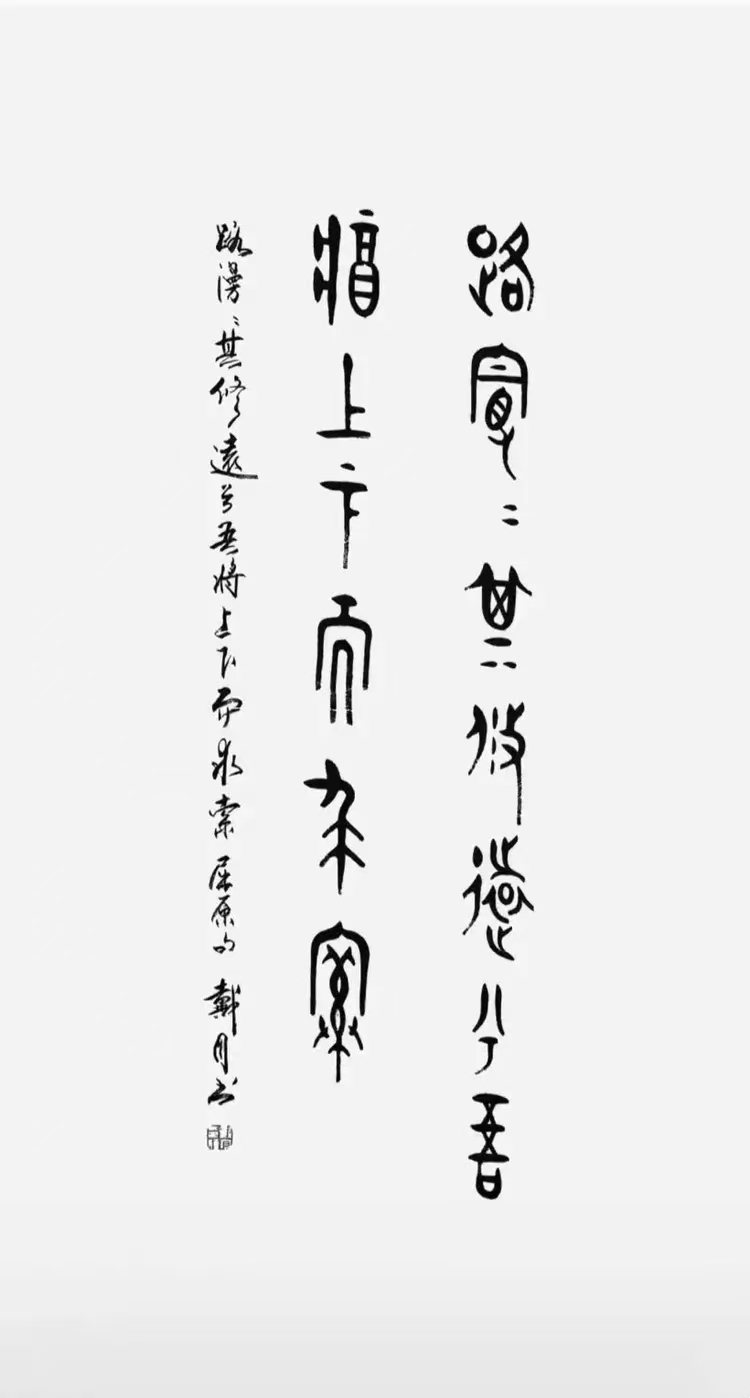 路曼〻其攸遠兮吾
牆上下而求索
路漫〻其修遠兮吾將上下而求索 屈原句 戴月书